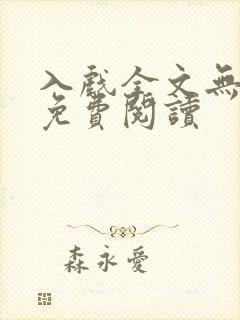 入戲全文無
免費閱讀
森永愛